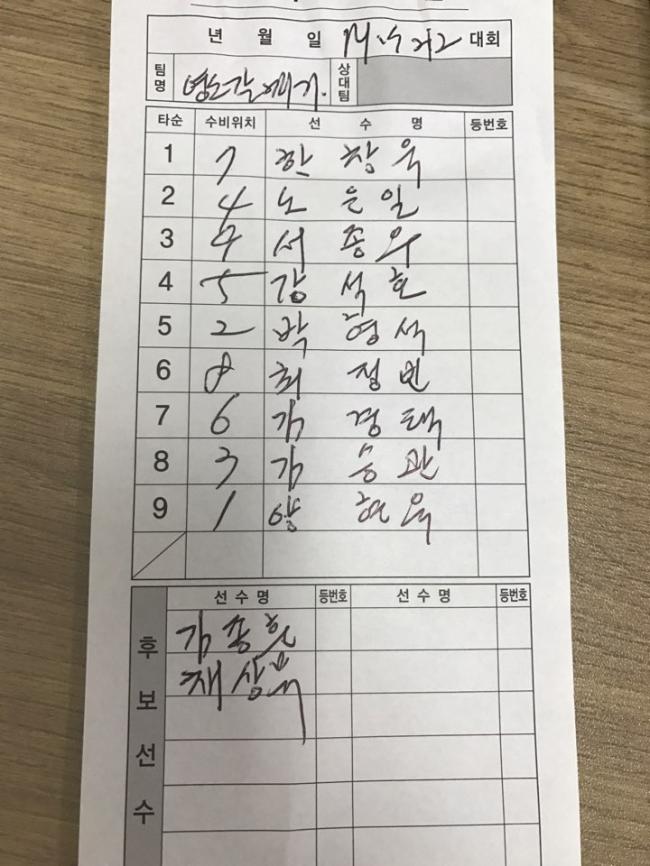 년 월 일 대회
팀명 상대팀
타순 수비위치 선 수 명 등번호
1 7 한 창 욱
2 4 노 은 일
3 9 서 종 욱
4 5 강 석 호
5 2 박 영 석
6 8 최 정 빈
7 6 김 경 택
8 3 김 승 관
9 1 양 현 욱
선 수 명 등번호 선 수 명 등번호
후보선수
김 종 훈
채 상